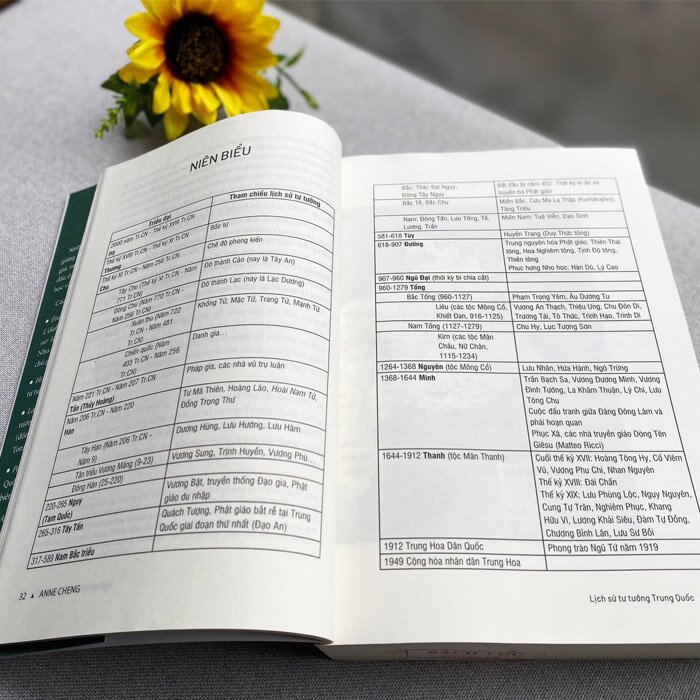 NIÊN BIỂU
Triều đại
Tham chiếu lịch sử tư tưởng
2000 năm Tr.CN - Thế kỷ XVIII Tr.CN
Hạ
Thế kỷ XVIII Tr.CN - Thế kỷ XI Tr.CN
Bốc từ
Thương
Thế kỷ XI Tr.CN - Năm 256 Tr.CN
Chế độ phong kiến
Chu
Tây Chu (Thế kỷ XI Tr.CN -
771 Tr.CN)
Đô thành Cảo (nay là Tây An)
Đông Chu (Năm 770 Tr.CN -
Năm 256 Tr.CN)
Đô thành Lạc (nay là Lạc Dương)
Xuân thu (Năm 722
Tr.CN - Năm 481
Tr.CN)
Khổng Tử, Mặc Tử, Trang Tử, Mạnh Tử
Chiến quốc (Năm
403 Tr.CN - Năm 256
Tr.CN)
Danh gia...
Năm 221 Tr.CN - Năm 207 Tr.CN
Pháp gia, các nhà vũ trụ luận
Tần (Thủy Hoàng)
Năm 206 Tr.CN - Năm 220
Hán
Tư Mã Thiên, Hoàng Lão, Hoài Nam Tử,
Đổng Trọng Thư
Tây Hán (Năm 206 Tr.CN -
Năm 9)
Dương Hùng, Lưu Hướng, Lưu Hâm
Tân triều Vương Mãng (9-23)
Vương Sung, Trịnh Huyền, Vương Phù...
Đông Hán (25-220)
220-265 Ngụy
(Tam Quốc)
Vương Bật, truyền thống Đạo gia, Phật
giáo du nhập
265-316 Tây Tấn
Quách Tượng, Phật giáo bắt rễ tại Trung
Quốc giai đoạn thứ nhất (Đạo An)
317-589 Nam Bắc triều
32 ▲ ANNE CHENG
Bắc: Thác Bạt Ngụy,
Đông Tây Ngụy
Bắt đầu từ năm 402: Thời kỳ in ấn và
truyền bá Phật giáo
Bắc Tề, Bắc Chu
Miền Bắc: Cưu Ma La Thập (Kumārajīva),
Tăng Triệu
Nam: Đông Tấn, Lưu Tống, Tề,
Lương, Trần
Miền Nam: Tuệ Viễn, Đạo Sinh
581-618 Tùy
Huyền Trang (Duy Thức tông)
618-907 Đường
Trung nguyên hóa Phật giáo: Thiên Thai
tông, Hoa Nghiêm tông, Tịnh Độ tông,
Thiền tông
Phục hưng Nho học: Hàn Dũ, Lý Cao
907-960 Ngũ Đại (thời kỳ bị chia cắt)
960-1279 Tống
Bắc Tống (960-1127)
Phạm Trọng Yêm, Âu Dương Tu
Liêu (các tộc Mông Cổ,
Khiết Đan, 916-1125)
Vương An Thạch, Thiệu Ung, Chu Đôn Di,
Trương Tái, Tô Thức, Trình Hạo, Trình Di
Nam Tống (1127-1279)
Chu Hy, Lục Tượng Sơn
Kim (các tộc Mãn
Châu, Nữ Chân,
1115-1234)
1264-1368 Nguyên (tộc Mông Cổ)
Lưu Nhân, Hứa Hành, Ngô Trừng
1368-1644 Minh
Trần Bạch Sa, Vương Dương Minh, Vương
Đình Tướng, La Khâm Thuận, Lý Chí, Lưu
Tông Chu
Cuộc đấu tranh giữa Đảng Đông Lâm và
phái hoạn quan
Phục Xã, các nhà truyền giáo Dòng Tên
Giêsu (Matteo Ricci)
1644-1912 Thanh (tộc Mãn Thanh)
Cuối thế kỷ XVII: Hoàng Tông Hy, Cố Viêm
Vũ, Vương Phu Chi, Nhan Nguyên
Thế kỷ XVIII: Đái Chấn
Thế kỷ XIX: Lưu Phùng Lộc, Ngụy Nguyên,
Cung Tự Trân, Nghiêm Phục, Khang
Hữu Vi, Lương Khải Siêu, Đàm Tự Đồng,
Chương Bính Lân, Lưu Sư Bồi
1912 Trung Hoa Dân Quốc
Phong trào Ngũ Tứ năm 1919
1949 Cộng hòa nhân dân Trung Hoa
Lịch sử tư tưởng Trung Quốc